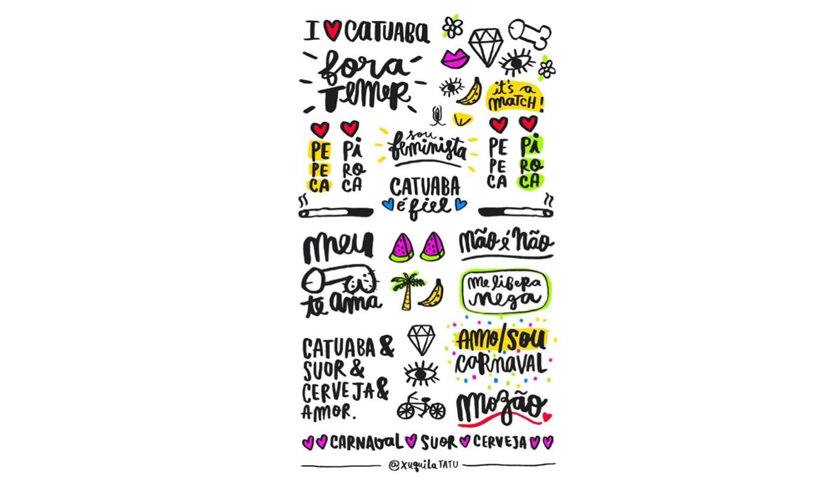 I ❤ CATUABA
fora
TEMER
it's a
MATCH!
PE
PE
CA
PI
RO
CA
sou
feminista
PE
PE
CA
PI
RO
CA
CATUABA
é fiel
meu
te ama
não é não
me libera
nega
CATUABA &
SUOR &
CERVEJA &
AMOR.
AMO/SOU
CARNAVAL
mozão
CARNAVAL SUOR CERVEJA
@xuquilaTATU